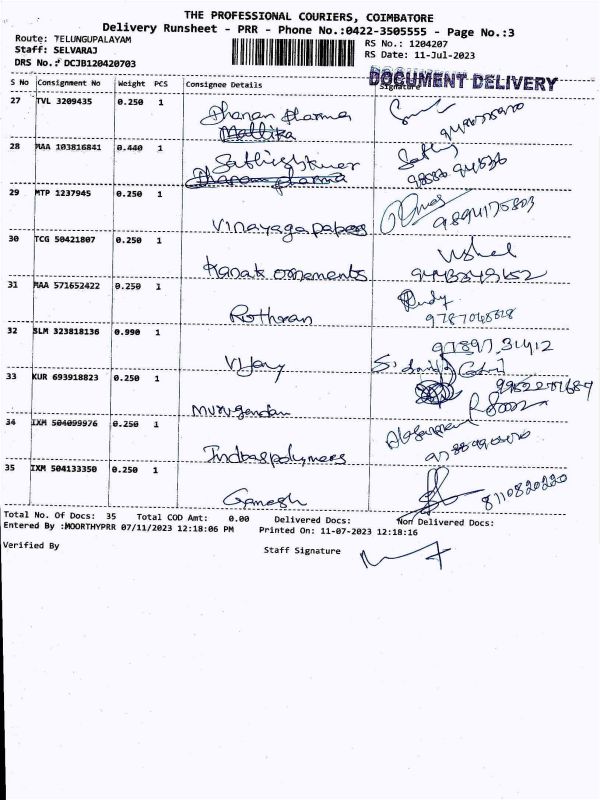 THE PROFESSIONAL COURIERS, COIMBATORE
Delivery Runsheet - PRR - Phone No.:0422-3505555 - Page No.:3
Route: TELUNGUPALAYAM
RS No.: 1204207
Staff: SELVARAJ
RS Date: 11-Jul-2023
DRS No.: DCJB120420703
DOCUMENT DELIVERY
S No Consignment No Weight PCS Consignee Details Signature
27 TVL 3209435 0.250 1 Dhanam pharma
Mallika
28 MAA 103816841 0.440 1 Sathishkumar
Dhanam pharma
29 MTP 1237945 0.250 1
Vinayaga papers 9894175803
30 TCG 50421807 0.250 1
Kanak ornements
31 MAA 571652422 0.250 1
32 SLM 323818136 0.990 1 97897 31412
Vijay
33 KUR 693918823 0.250 1
Murugandan
34 IXM 504099976 0.250 1
35 IXM 504133350 0.250 1
Ganesh 8110820220
Total No. Of Docs: 35 Total COD Amt: 0.00 Delivered Docs: Non Delivered Docs:
Entered By :MOORTHYPRR 07/11/2023 12:18:06 PM Printed On: 11-07-2023 12:18:16
Verified By Staff Signature